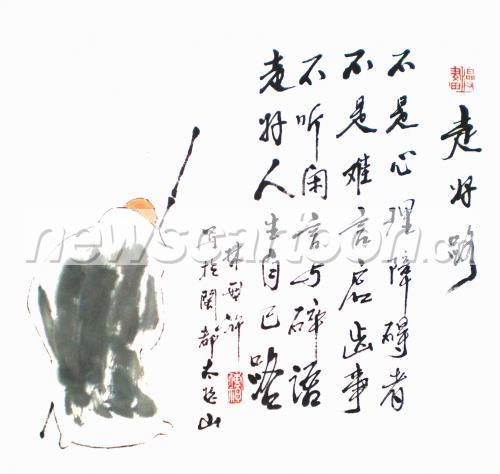 走好路
不是心理障碍者
不是难言启齿事
不听闲言与碎语
走好人生自己路
林 许
写於闽都太 山
newscartoon.cn